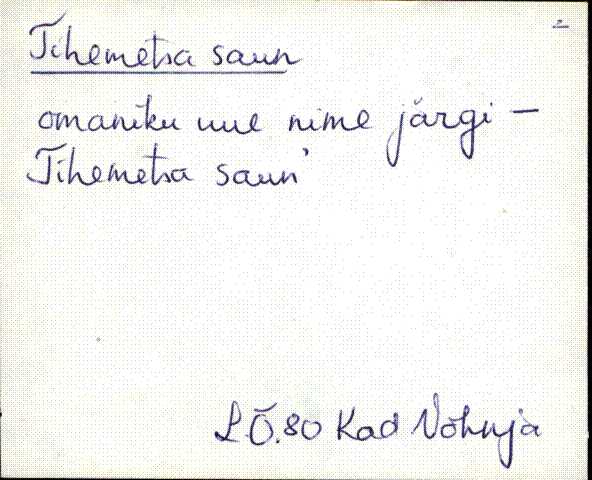 Tihemetsa saun
omaniku uue nime järgi —
Tihemetsa saun'
L.Õ.80 Kad Võhnja